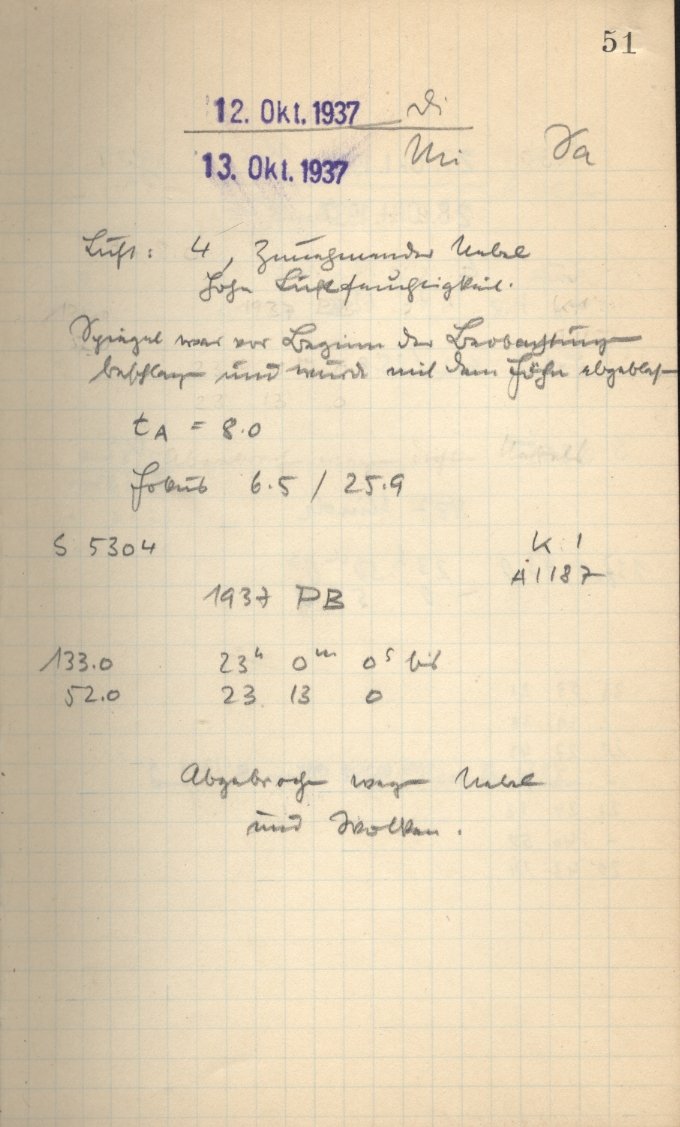 51
12. Okt. 1937 Di
13. Okt. 1937 Mi
Luft: 4, Zunehmender Nebel
hohe Luftfeuchtigkeit.
Spiegel war vor Beginn der Beobachtung
beschlagen und wurde mit dem Föhn abgeblasen
tA = 8.0
Fokus 6.5 / 25.9
S 5304 K 1
A 1187
1937 PB
133.0 23h 0m 0s bis
52.0 23 13 0
Abgebrochen wegen Nebel
und Wolken.